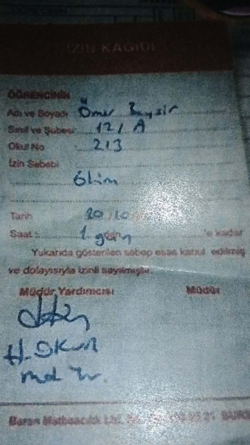 İZİN KAĞIDI
ÖĞRENCİNİN
Adı ve Soyadı Ömer
Sınıf ve Şubesi 12/A
Okul No 213
İzin Sebebi
ölüm
Tarih 20/10
Saat : 1 gün 'e kadar
Yukarıda gösterilen sebep esas kabul edilmiş
ve dolayısıyla izinli sayılmıştır.
Müdür Yardımcısı Müdür
H.
Md Yr.
Baran Matbaacılık Ltd.